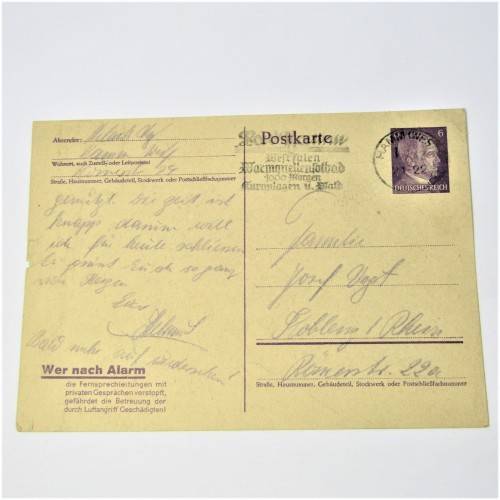 Postkarte
6
HAMM (WESTF)
22
DEUTSCHES REICH
Westfalen
Warmquellensolbad
1000 Morgen
Kuranlagen u. Wald
Absender:
Wohnort, auch Zustell- oder Leitpostamt
Straße, Hausnummer, Gebäudeteil, Stockwerk oder Postschließfachnummer
genügt. Die Zeit ist
knapp darum will
ich für heute schließen
Es grüßt Euch so ganz
von Herzen
Euer
Helmut
Bald mehr auf wiedersehen!
Wer nach Alarm
die Fernsprechleitungen mit
privaten Gesprächen verstopft,
gefährdet die Betreuung der
durch Luftangriff Geschädigten!
Familie
Josef Vogt
Koblenz / Rhein
Römerstr. 22a
Straße, Hausnummer, Gebäudeteil, Stockwerk oder Postschließfachnummer